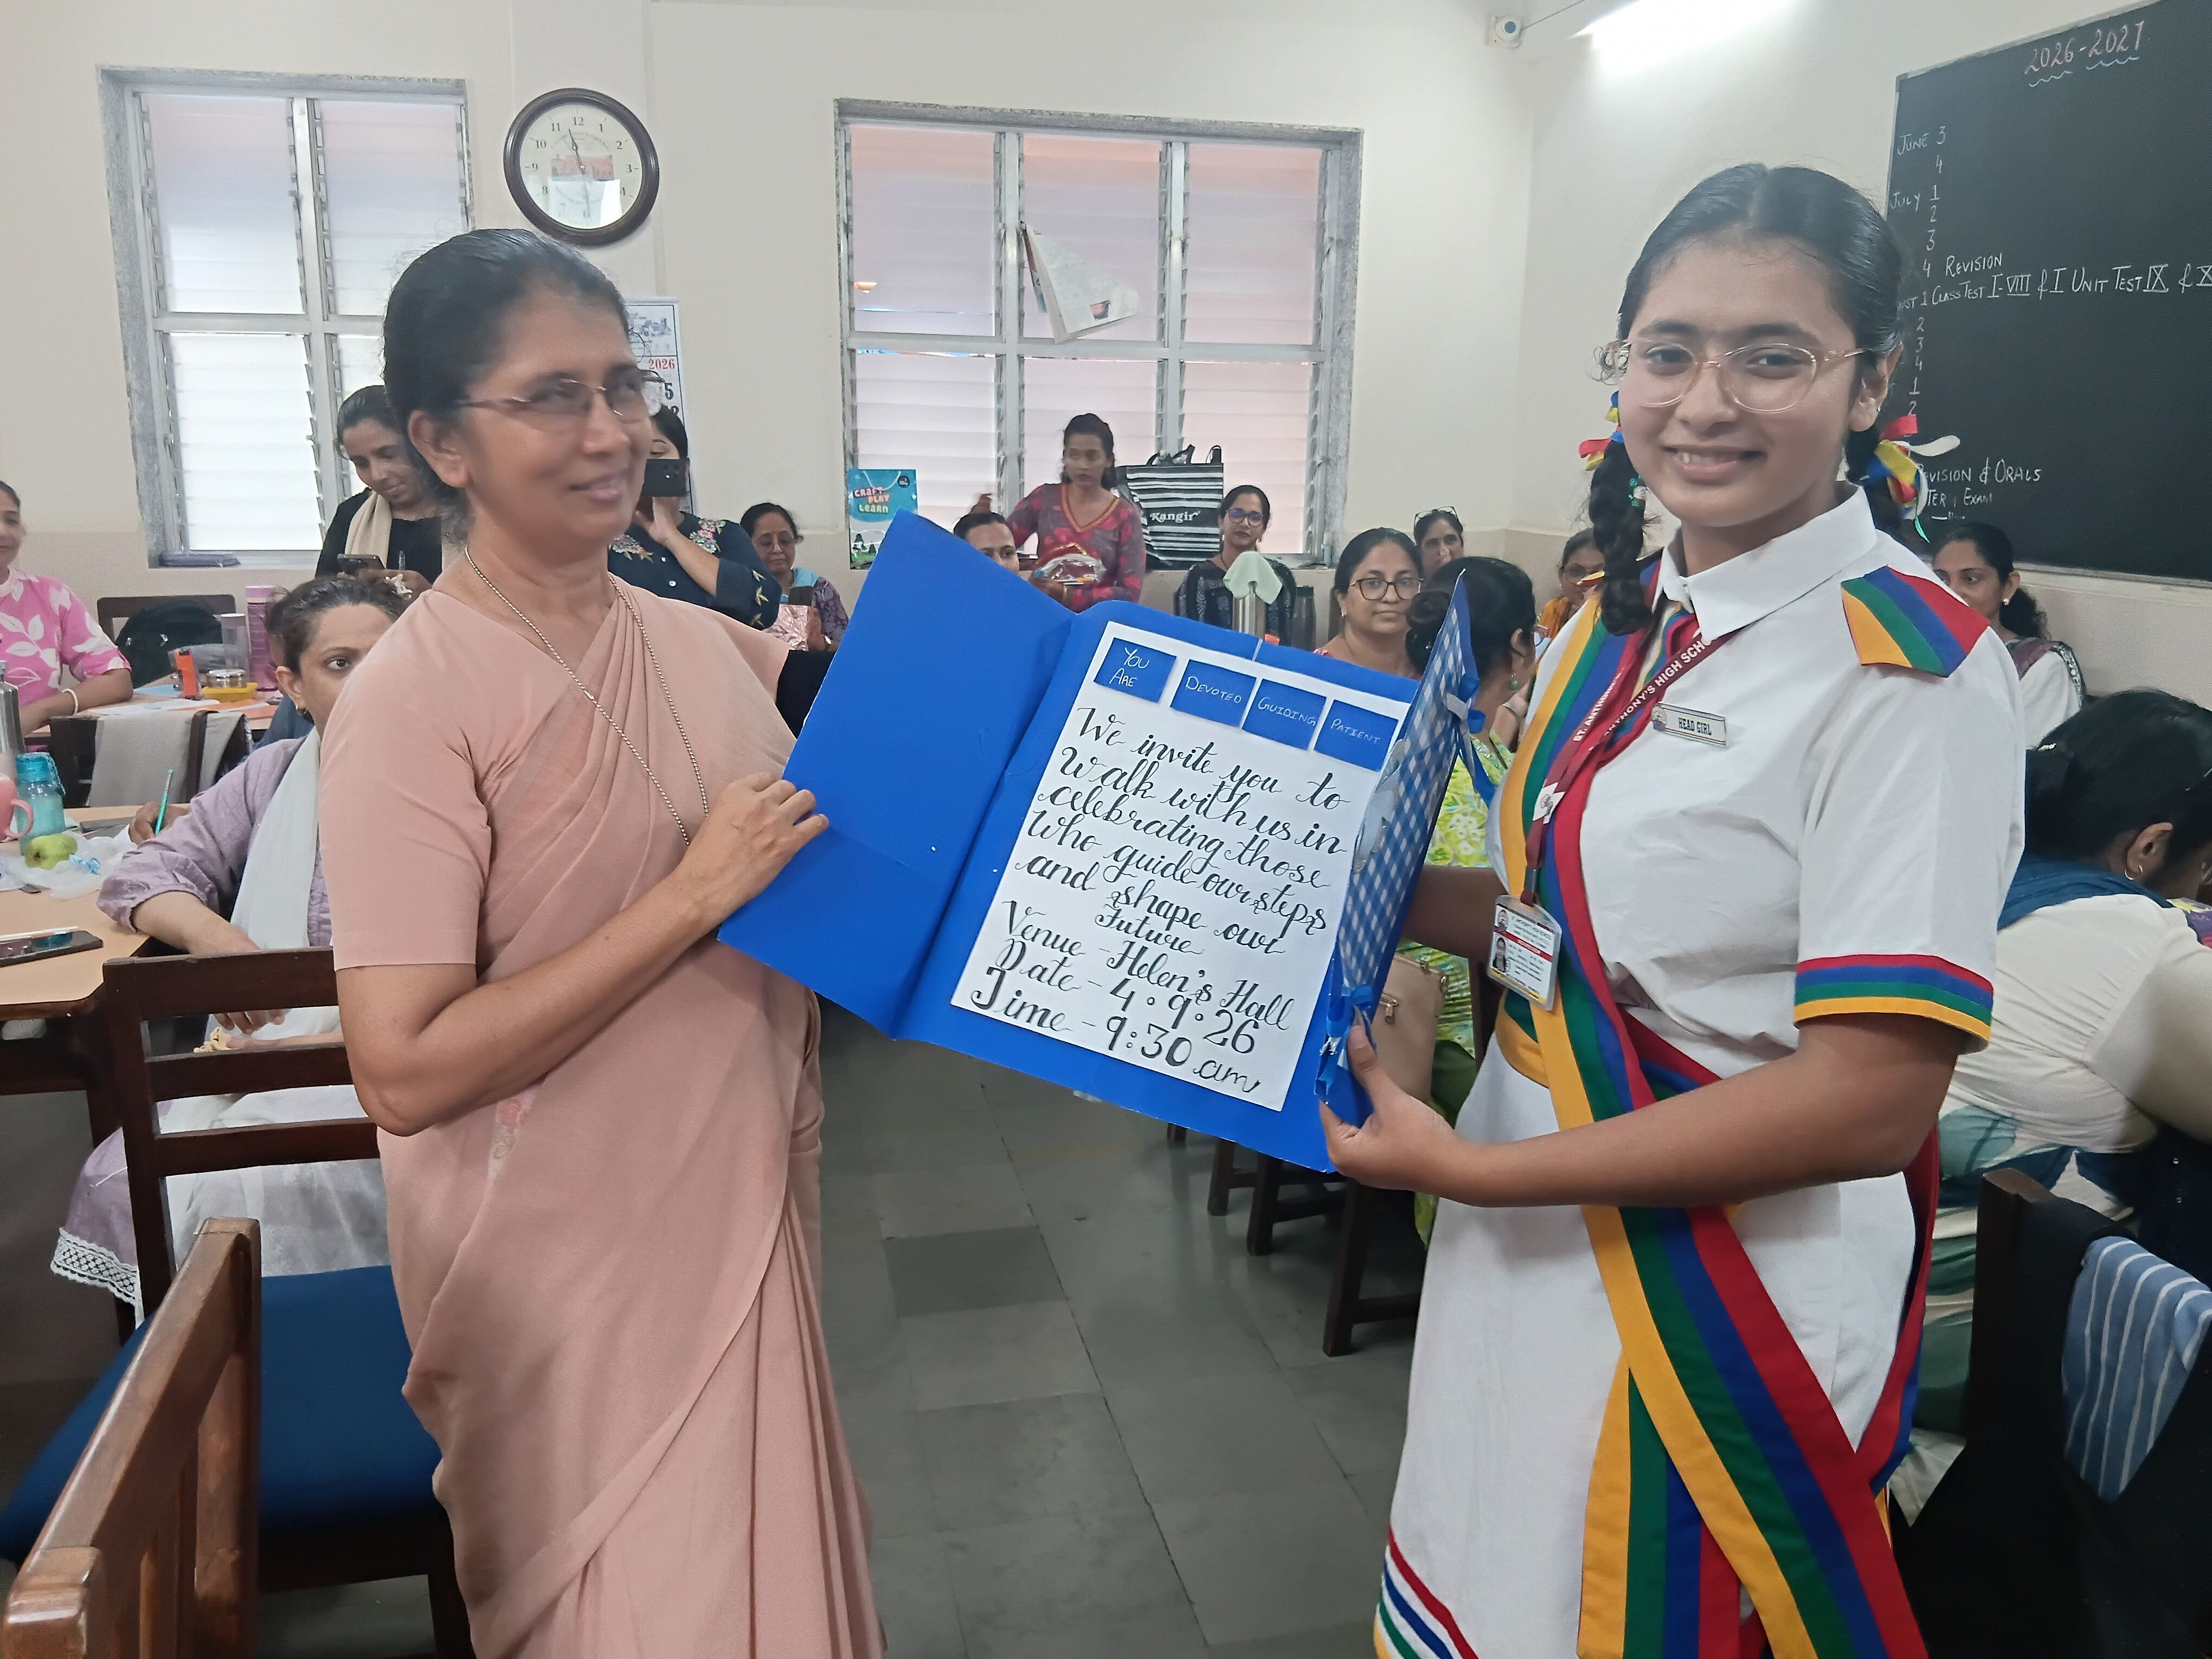 2026-2027
JUNE 3
4
JULY 1
2
3
4 REVISION
1 CLASS TEST I-VIII & I UNIT TEST IX & X
2
3
4
1
2
REVISION & ORALS
EXAM
11 12 1
10 2
9 3
8 4
7 6
2026
5
CRAFT
PLAY
LEARN
Kangir
YOU
ARE
DEVOTED
GUIDING
PATIENT
We invite you to
Walk with us in
celebrating those
Who guide our steps
and shape our
Future
Venue - Helen's Hall
Date - 4.9.26
Time - 9:30 am
ST. ANTHONY'S HIGH SCHO
HEAD GIRL